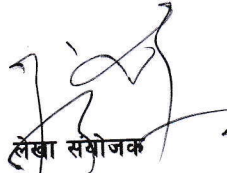 लेखा संयोजक